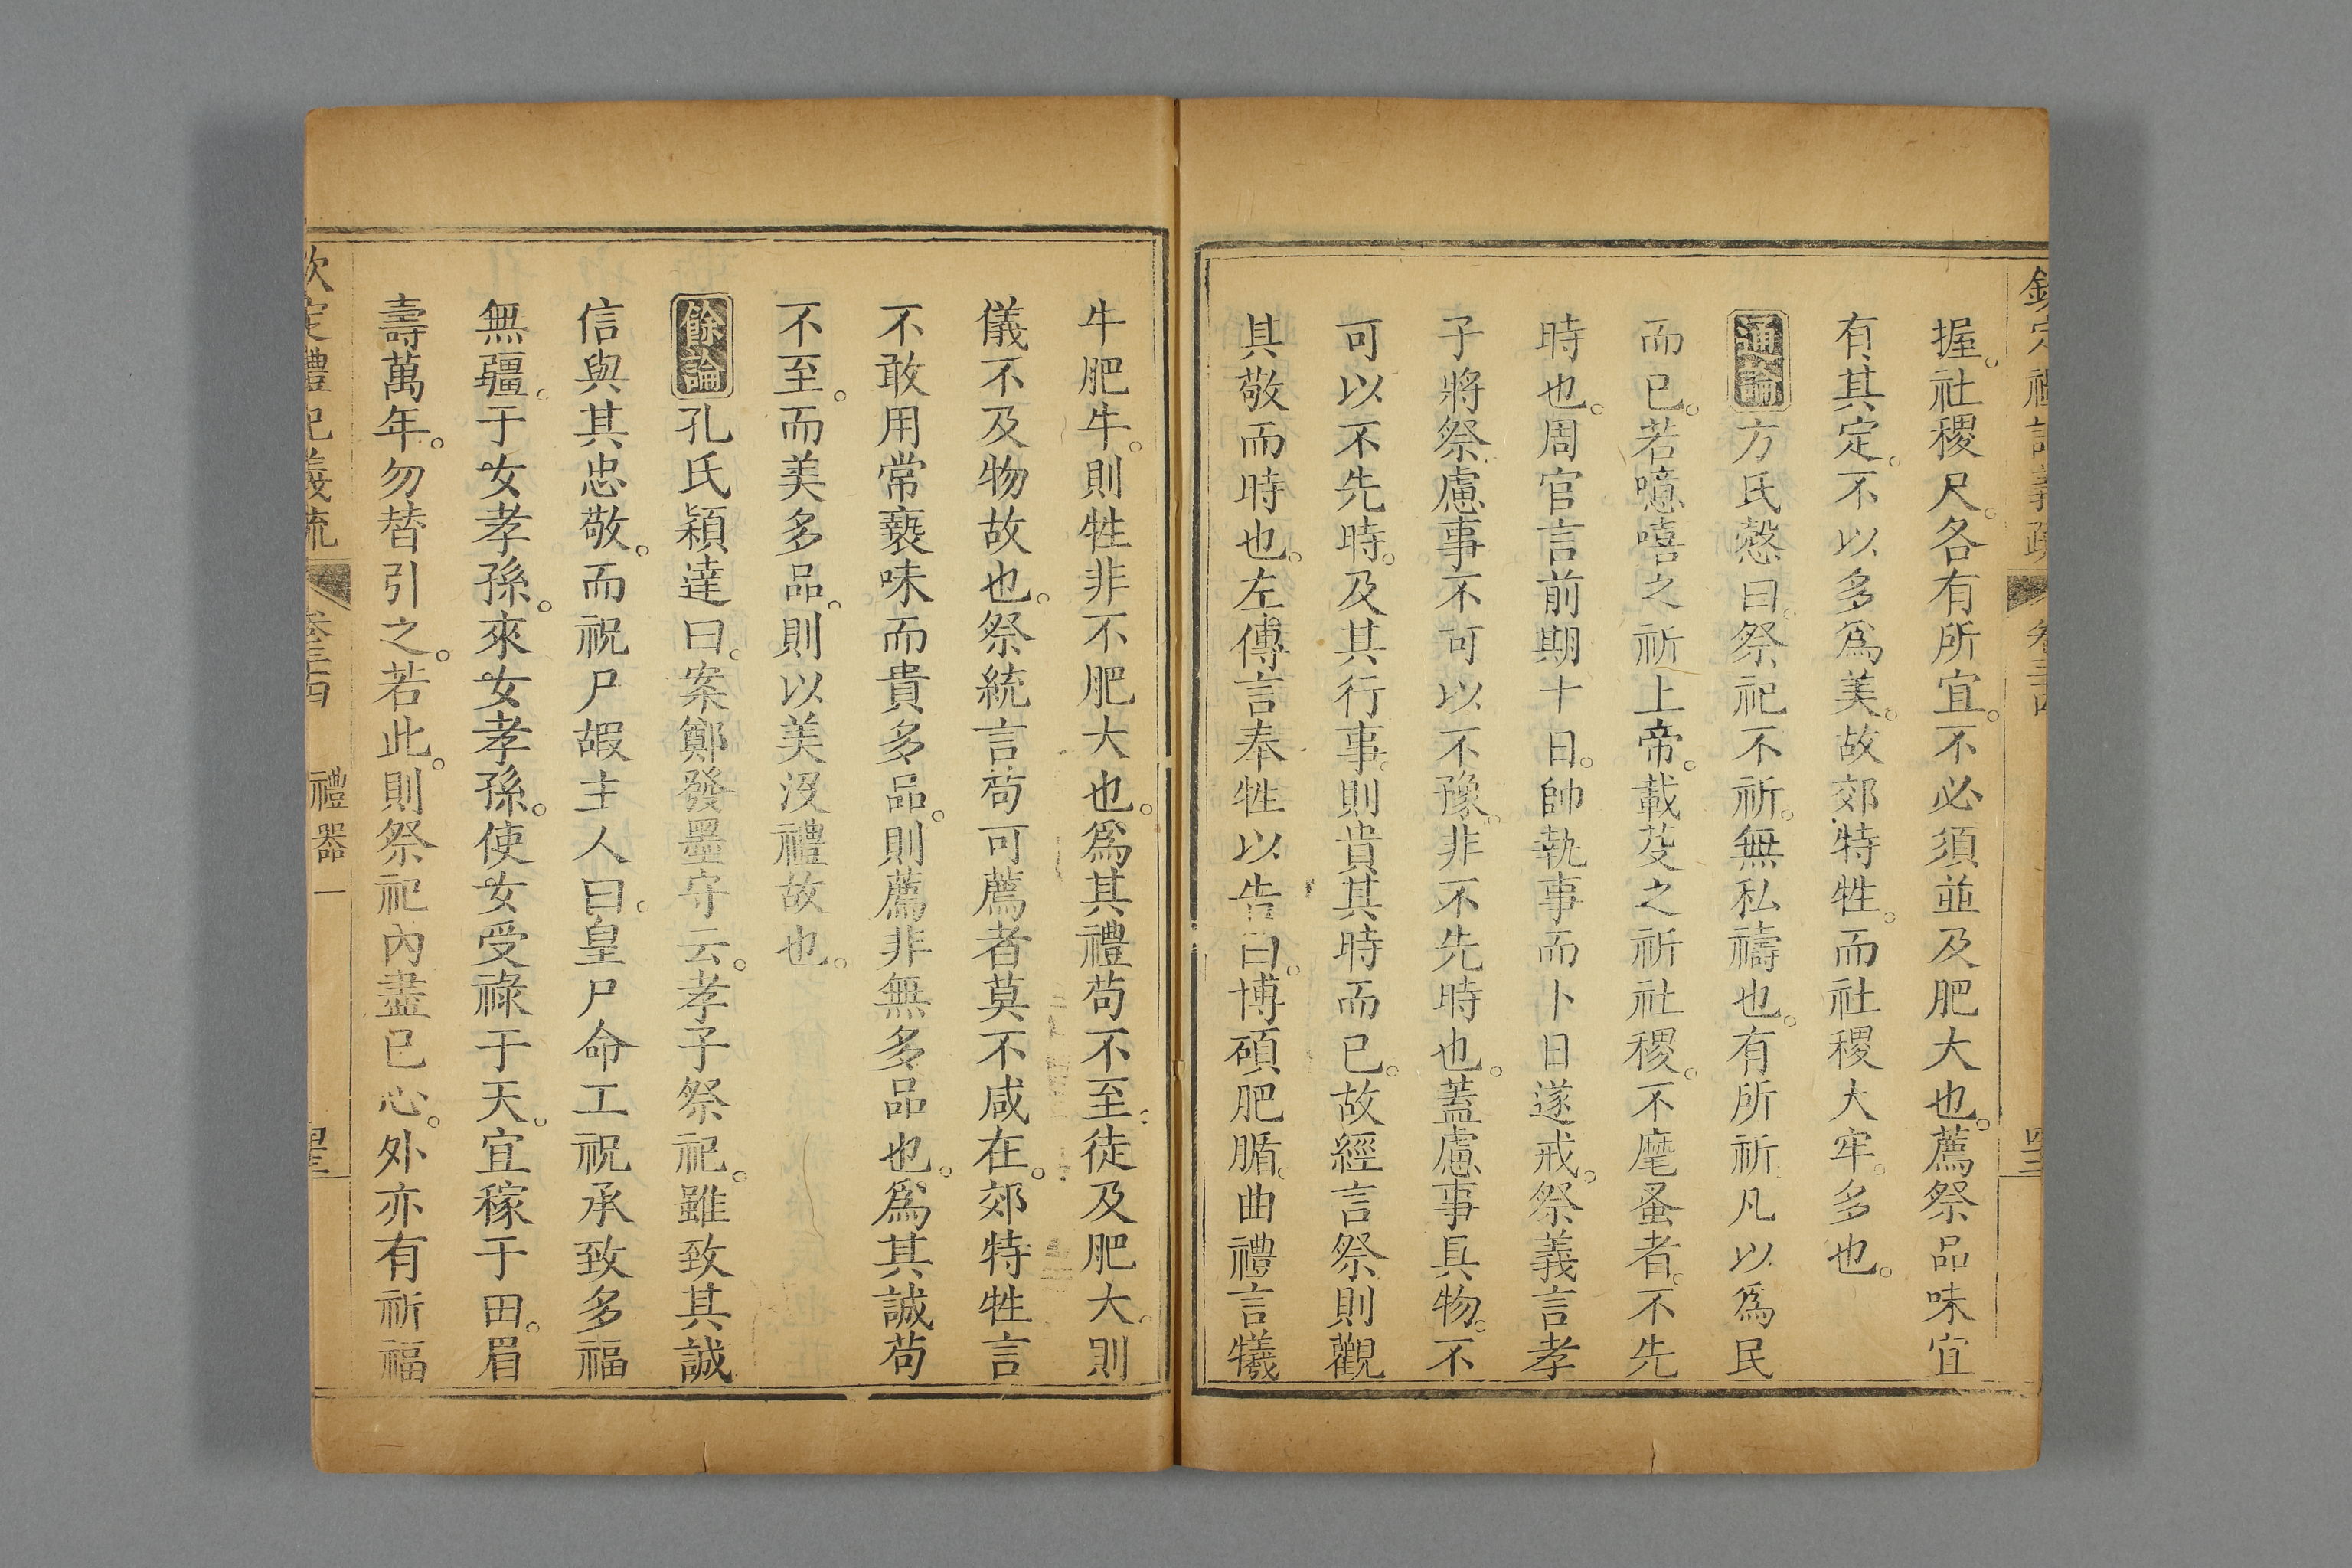 欽定禮記義疏 卷三十四
握。社稷尺。各有所宜。不必須並及肥大也。薦祭品味宜
有其定。不以多爲美。故郊特牲。而社稷大牢。多也。
通論 方氏慤曰。祭祀不祈。無私禱也。有所祈凡以爲民
而已。若噫嘻之祈上帝。載芟之祈社稷。不麾蚤者。不先
時也。周官言前期十日。帥執事而卜日遂戒。祭義言孝
子將祭慮事不可以不豫。非不先時也。蓋慮事具物。不
可以不先時。及其行事。則貴其時而已。故經言祭則觀
其敬而時也。左傳言奉牲以告曰。博碩肥腯。曲禮言犧
牛肥牛。則牲非不肥大也。爲其禮苟不至。徒及肥大。則
儀不及物故也。祭統言苟可薦者莫不咸在。郊特牲言
不敢用常褻味而貴多品。則薦非無多品也。爲其誠苟
不至。而美多品。則以美沒禮故也。
餘論 孔氏穎達曰。案鄭發墨守云。孝子祭祀。雖致其誠
信與其忠敬。而祝尸嘏主人曰。皇尸命工祝承致多福
無疆。于女孝孫。來女孝孫。使女受祿于天。宜稼于田。眉
壽萬年。勿替引之。若此。則祭祀內盡已心。外亦有祈福
欽定禮記義疏 卷三十四 禮器一